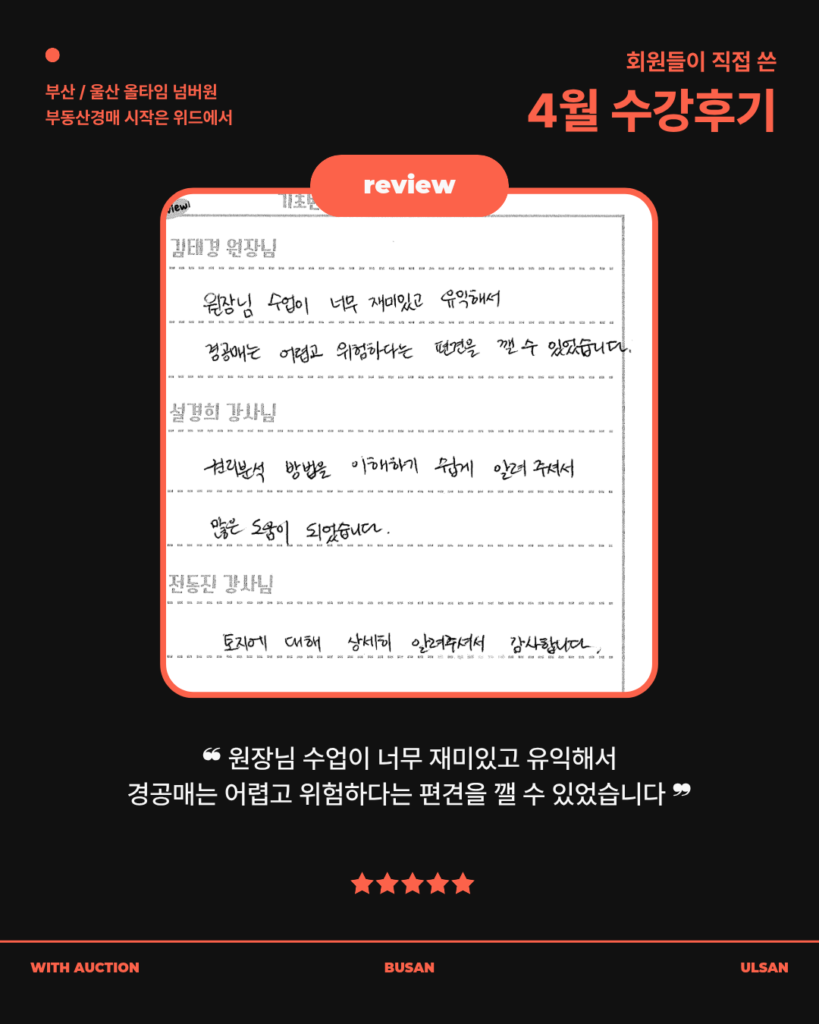 부산 / 울산 올타임 넘버원
부동산경매 시작은 위드에서
회원들이 직접 쓴
4월 수강후기
review
김태경 원장님
원장님 수업이 너무 재미있고 유익해서
경공매는 어렵고 위험하다는 편견을 깰 수 있었습니다.
설경희 강사님
권리분석 방법을 이해하기 쉽게 알려 주셔서
많은 도움이 되었습니다.
전동진 강사님
토지에 대해 상세히 알려주셔서 감사합니다.
❝ 원장님 수업이 너무 재미있고 유익해서
경공매는 어렵고 위험하다는 편견을 깰 수 있었습니다 ❞
WITH AUCTION BUSAN ULSAN